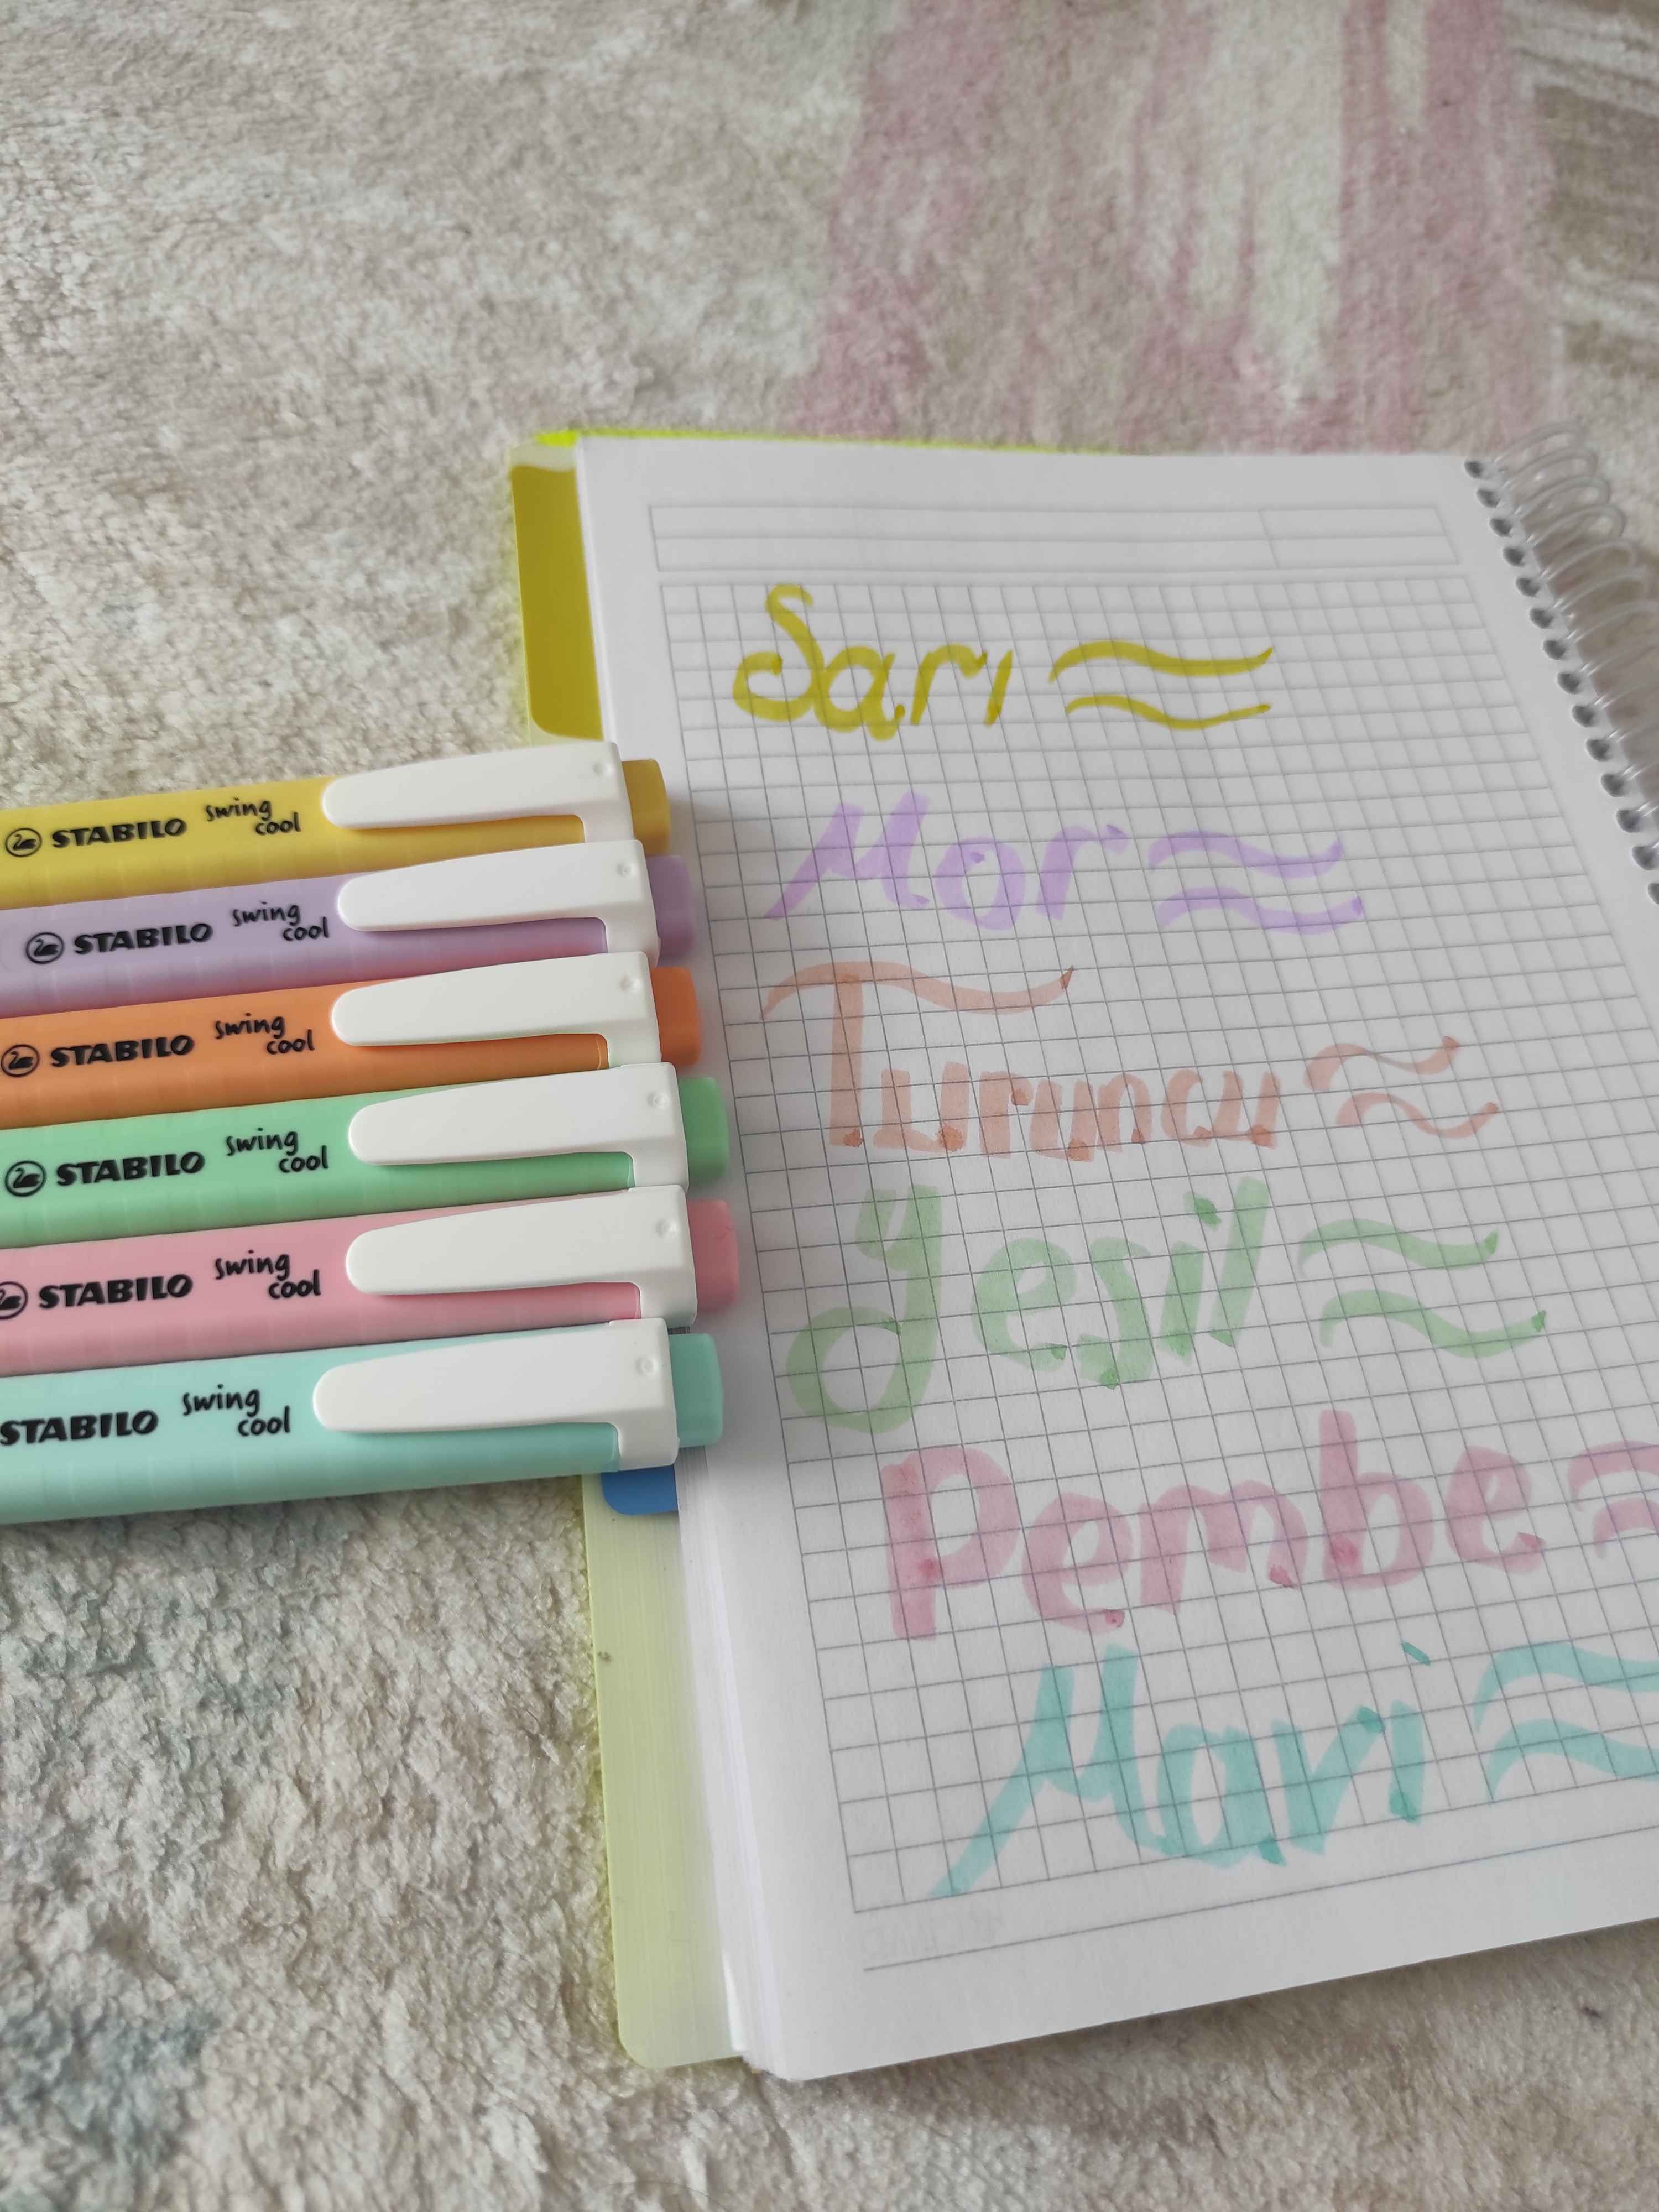 Sarı
STABILO swing cool
Mor
STABILO swing cool
Turuncu
STABILO swing cool
yesil
STABILO swing cool
Pembe
STABILO swing cool
Mavi
STABILO swing cool